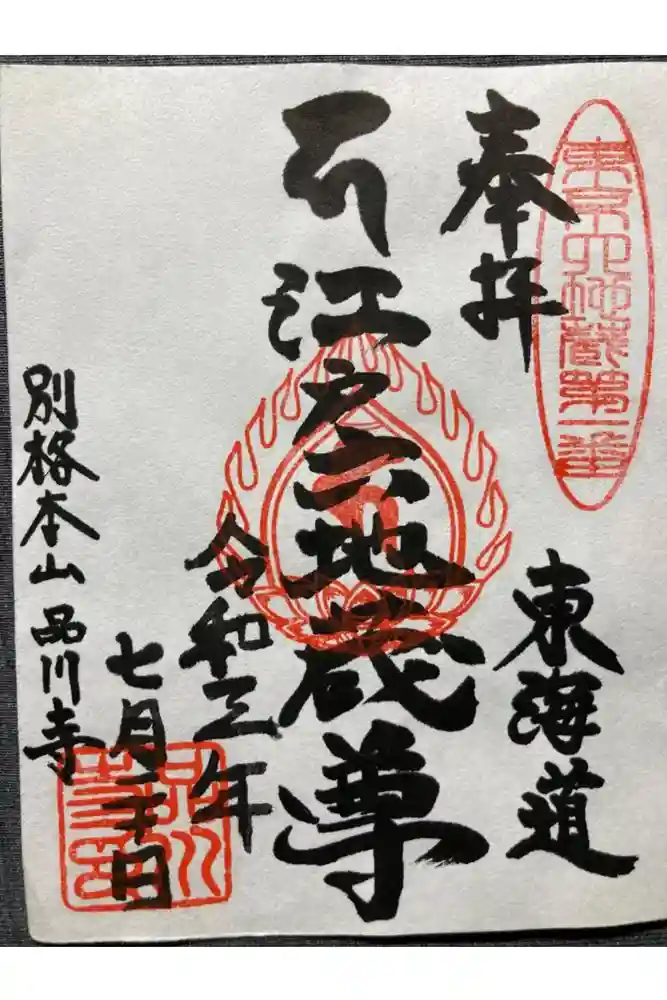 東京六地蔵第一番
奉拝
東海道
江戸六地蔵尊
令和三年
七月二十日
別格本山 品川寺
品川
寺印